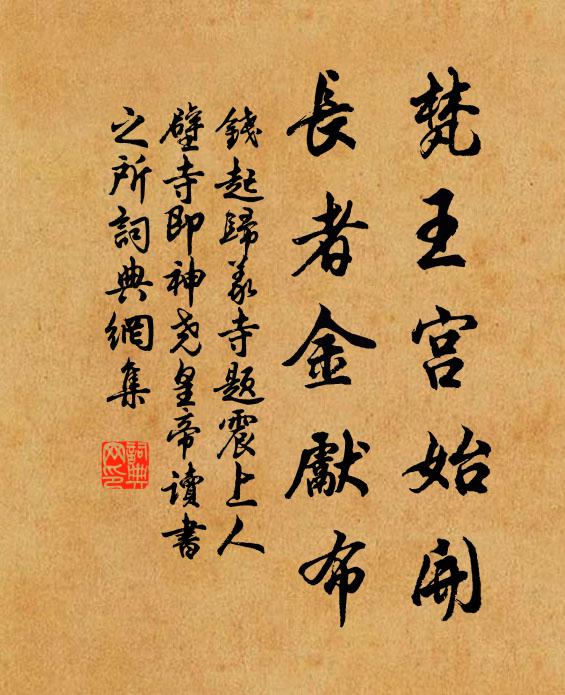 梵王宮始開
長者金獻布
錢起歸義寺題震上人
壁寺即神堯皇帝讀書
之所詞典網集
詞典